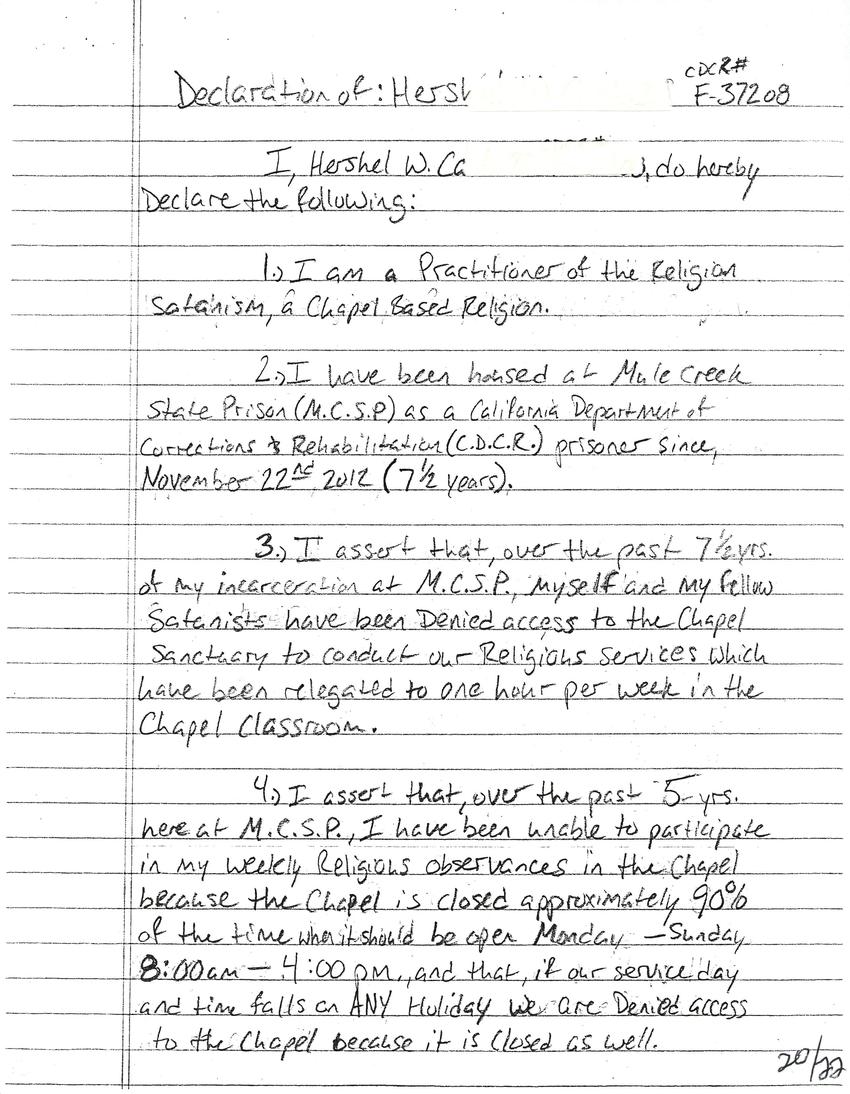 Declaration of: Hersh
CDCR#
F-37208
I, Hershel W. Ca , do hereby
Declare the following:
1.) I am a Practitioner of the Religion
Satanism, a Chapel Based Religion.
2.) I have been housed at Mule Creek
State Prison (M.C.S.P) as a California Department of
Corrections & Rehabilitation (C.D.C.R.) prisoner since,
November 22nd 2012 (7 1/2 years).
3.) I assert that, over the past 7 1/2 yrs.
of my incarceration at M.C.S.P., myself and my fellow
Satanists have been Denied access to the Chapel
Sanctuary to conduct our Religious services which
have been relegated to one hour per week in the
Chapel Classroom.
4.) I assert that, over the past 5-yrs.
here at M.C.S.P., I have been unable to participate
in my weekly Religious observances in the Chapel
because the Chapel is closed approximately 90%
of the time when it should be open Monday - Sunday
8:00am - 4:00 pm., and that, if our service day
and time falls on ANY Holiday we are Denied access
to the Chapel because it is closed as well.
20/22